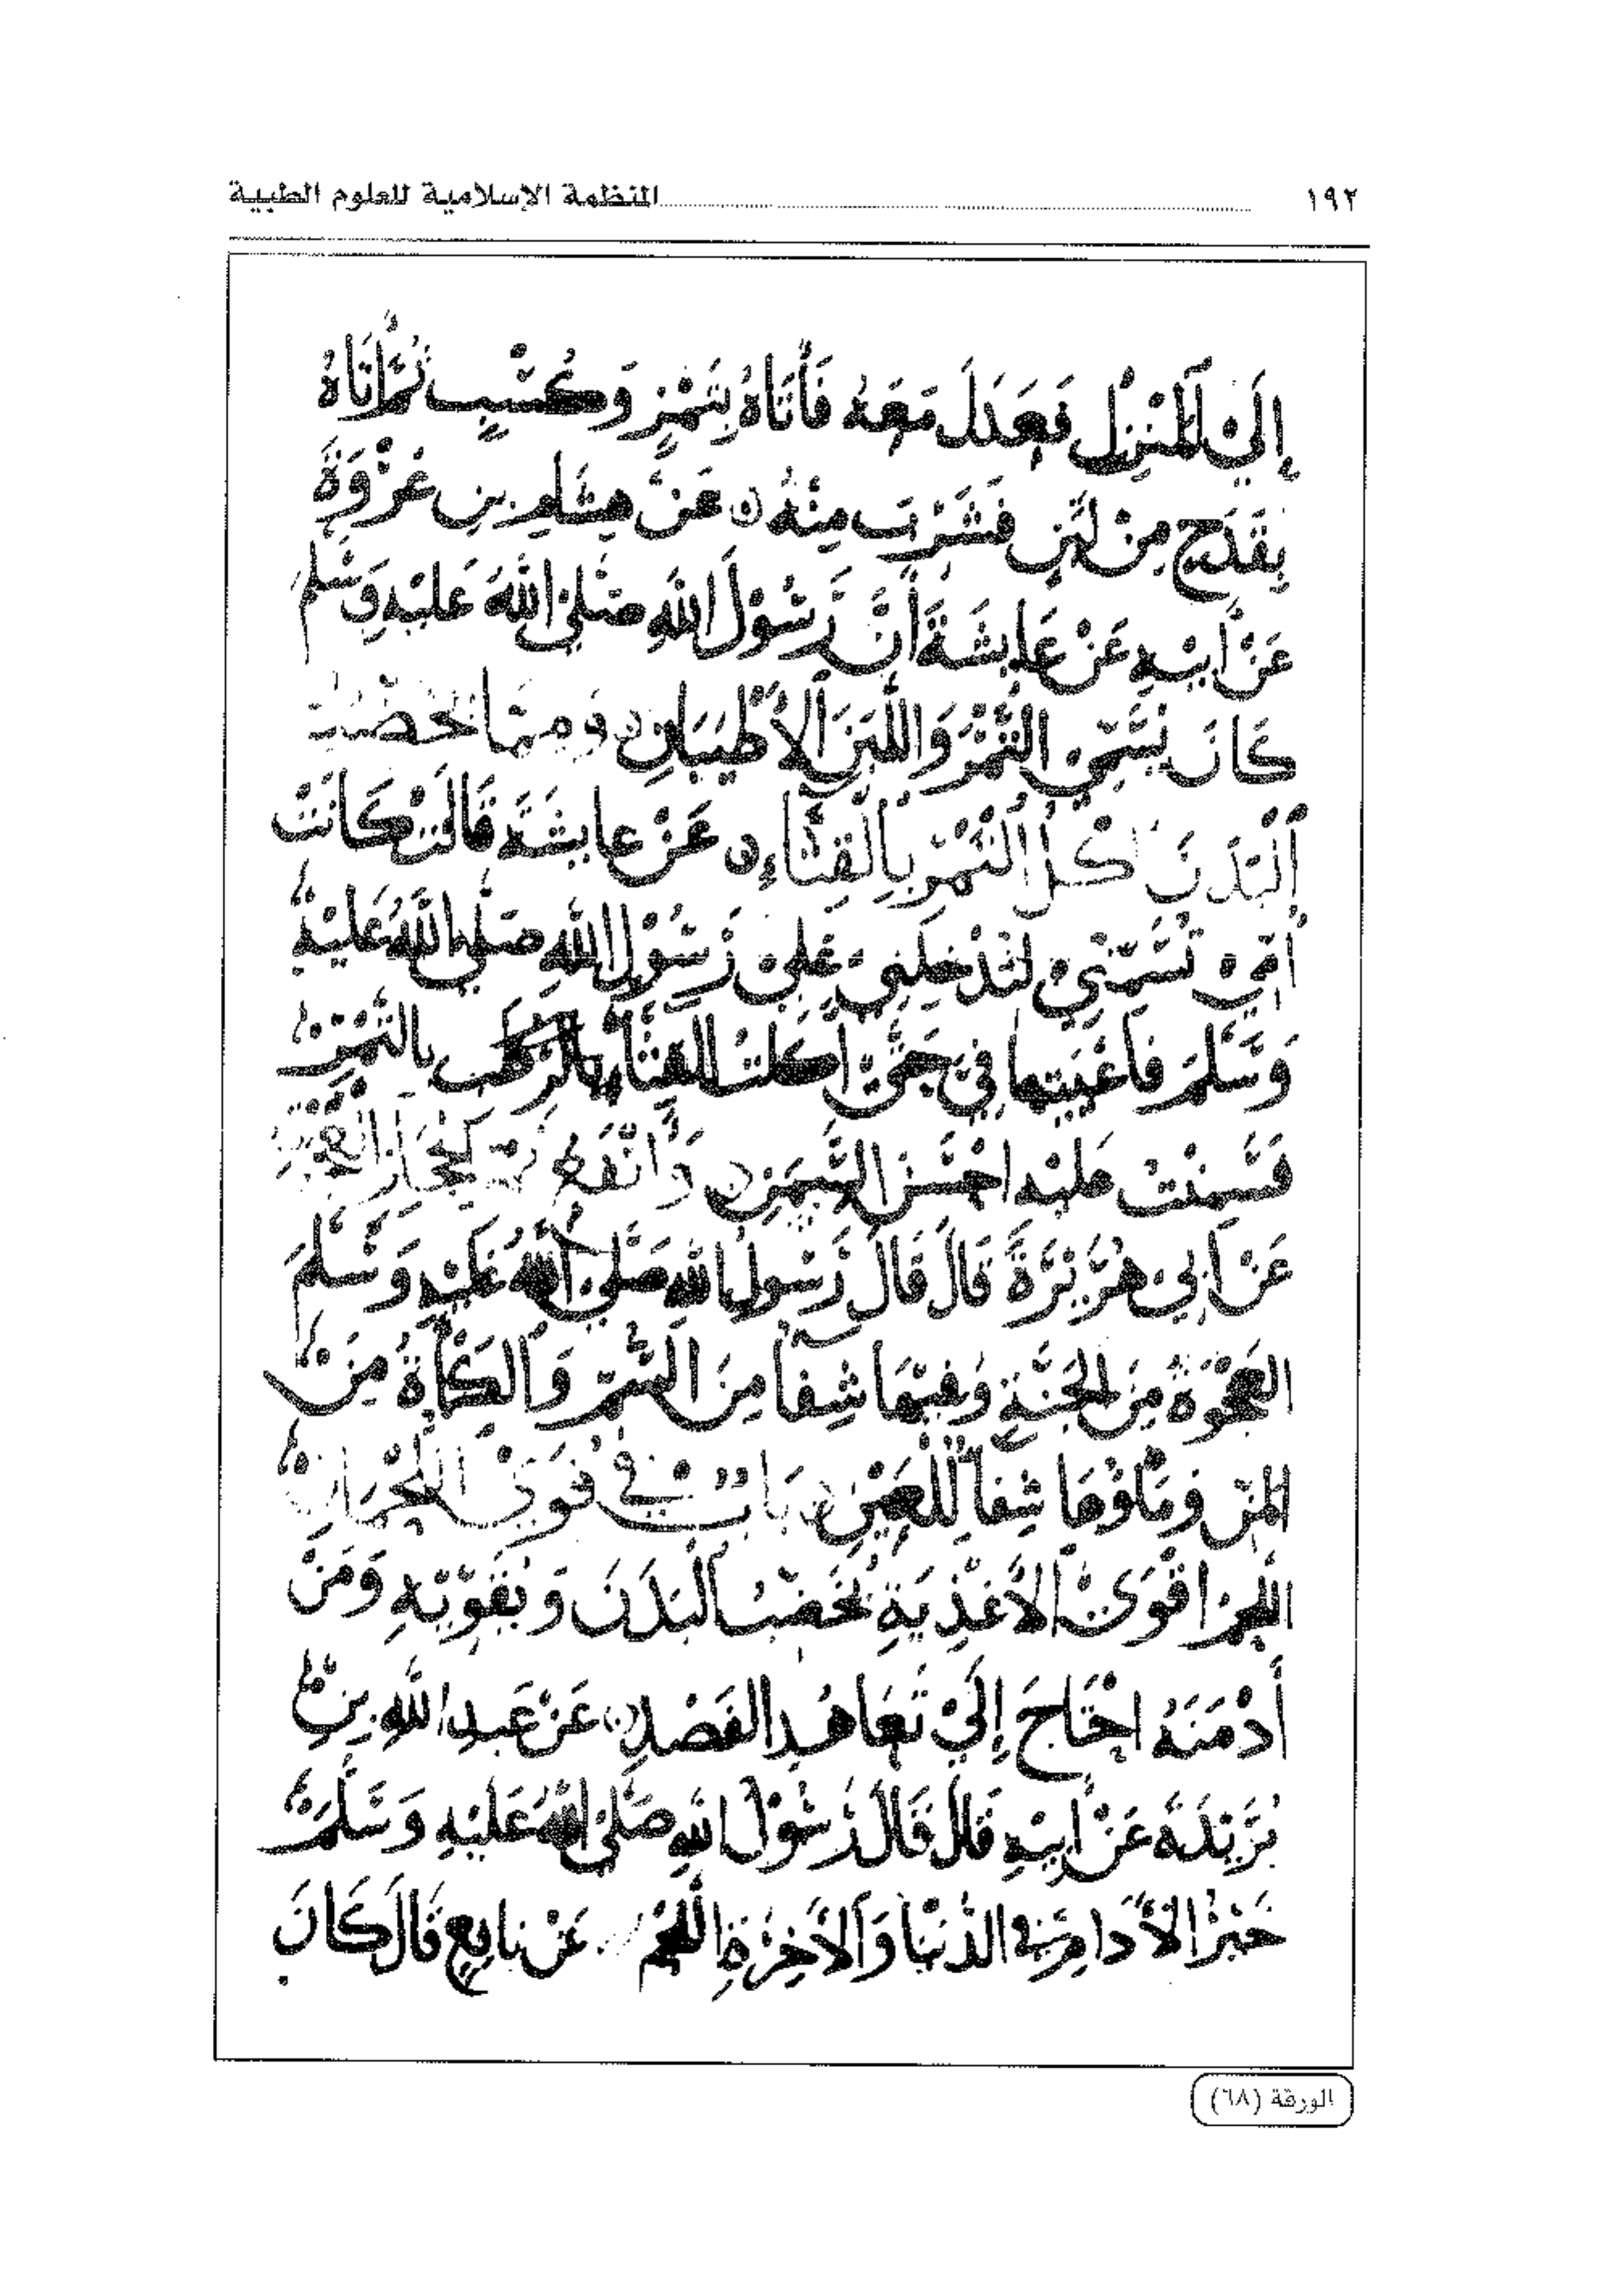 ١٩٢ المنظمة الإسلامية للعلوم الطبية
إِلَى الْمَنْزِلِ فَعَدَلَ مَعَهُ فَأَتَاهُ بِتَمْرٍ وَكُسْبٍ ثُمَّ أَتَاهُ
بِقَدَحٍ مِنْ لَبَنٍ فَشَرِبَ مِنْهُ ن عَنْ هِشَامِ بنِ عُرْوَةَ
عَنْ أَبِيهِ عَنْ عَايِشَةَ أَنَّ رَسُوْلَ اللهِ صَلَّى اللهُ عَلَيْهِ وَسَلم
كَانَ يُسَمِّي التَّمْرَ وَاللَّبَنَ الأَطْيَبَانِ ن وَمِمَّا يُخَصِّبُ
الْبَدَنَ اكْلُ التَّمْرِ بِالْقِثَّاءِ ن عَنْ عايشَةَ قَالَتْ كَانَتْ
أُمِّي تُسَمِّنُنِي لتُدْخِلَنِي عَلَى رَسُوْلِ اللهِ صَلَّى اللهُ عَلَيْهِ
وَسَلَّمَ فاعْيَيتها فِي حَتَّى اكلتُ القِثَّاء بالرطَب بالتَّمْرِ
فَسَمِنْتُ عليْه احْسَنَ السِّمَنِ ن وَأَنْفَعُ تمر الحِجَازِ العَجْوَةُ
عَنْ أَبِي هُرَيْرَةَ قَالَ قَالَ رَسُولُ اللهِ صَلَّى اللهُ عَلَيْهِ وَسَلَّمَ
العَجْوَةُ مِنَ الجَنَّةِ وَفِيْهَا شِفَآ مِنَ السُّمِّ وَالكَمْأَةُ مِنَ
المَنِّ وَمَاؤهَا شِفَآ لِلْعَيْنِ ن بَاب فِي قُوَى اللُّحْمَانِ
اللحْمُ اقْوَى الأَغْذِيَةِ يُخَصِّبُ الْبَدَنَ وَيُقَوِّيْهِ وَمَنْ
أَدْمَنَهُ احْتَاجَ إِلَى تَعَاهُدِ الفَصْدِ ن عَنْ عَبدِ اللهِ بنِ
بُرَيْدَةَ عَنْ أَبِيْهِ قَالَ قَالَ رَسُوْلُ اللهِ صَلَّى اللهُ عَلَيْهِ وَسَلَّمَ
خَيْرُ الأدَامِ فِي الدُّنْيَا وَالآخِرَةِ اللَّحْمُ ن عَنْ نافِعٍ قَالَ كَانَ
الورقة (٦٨)